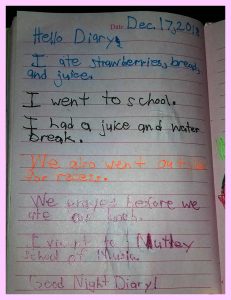 Date Dec. 17, 2018
Hello Diary!
I ate strawberries, bread,
and juice.
I went to school.
I had a juice and water
break.
We also went out
for recess.
We prayed before we
ate our lunch.
I to Mutley
School of Music.
Good Night Diary!